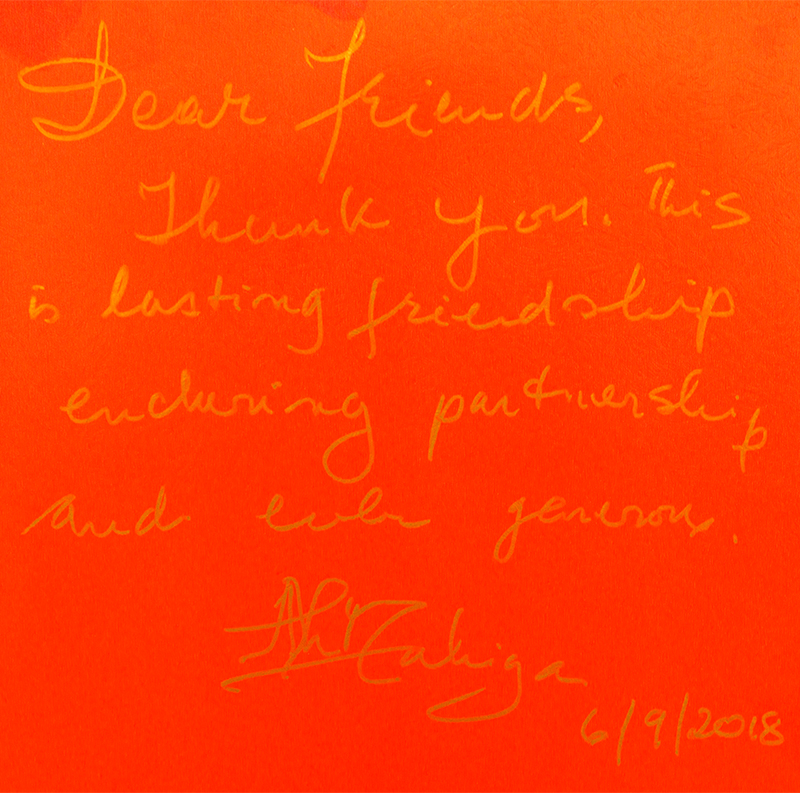 Dear Friends,
Thank you. This
is lasting friendship
enduring partnership
and ever generous.
6/9/2018